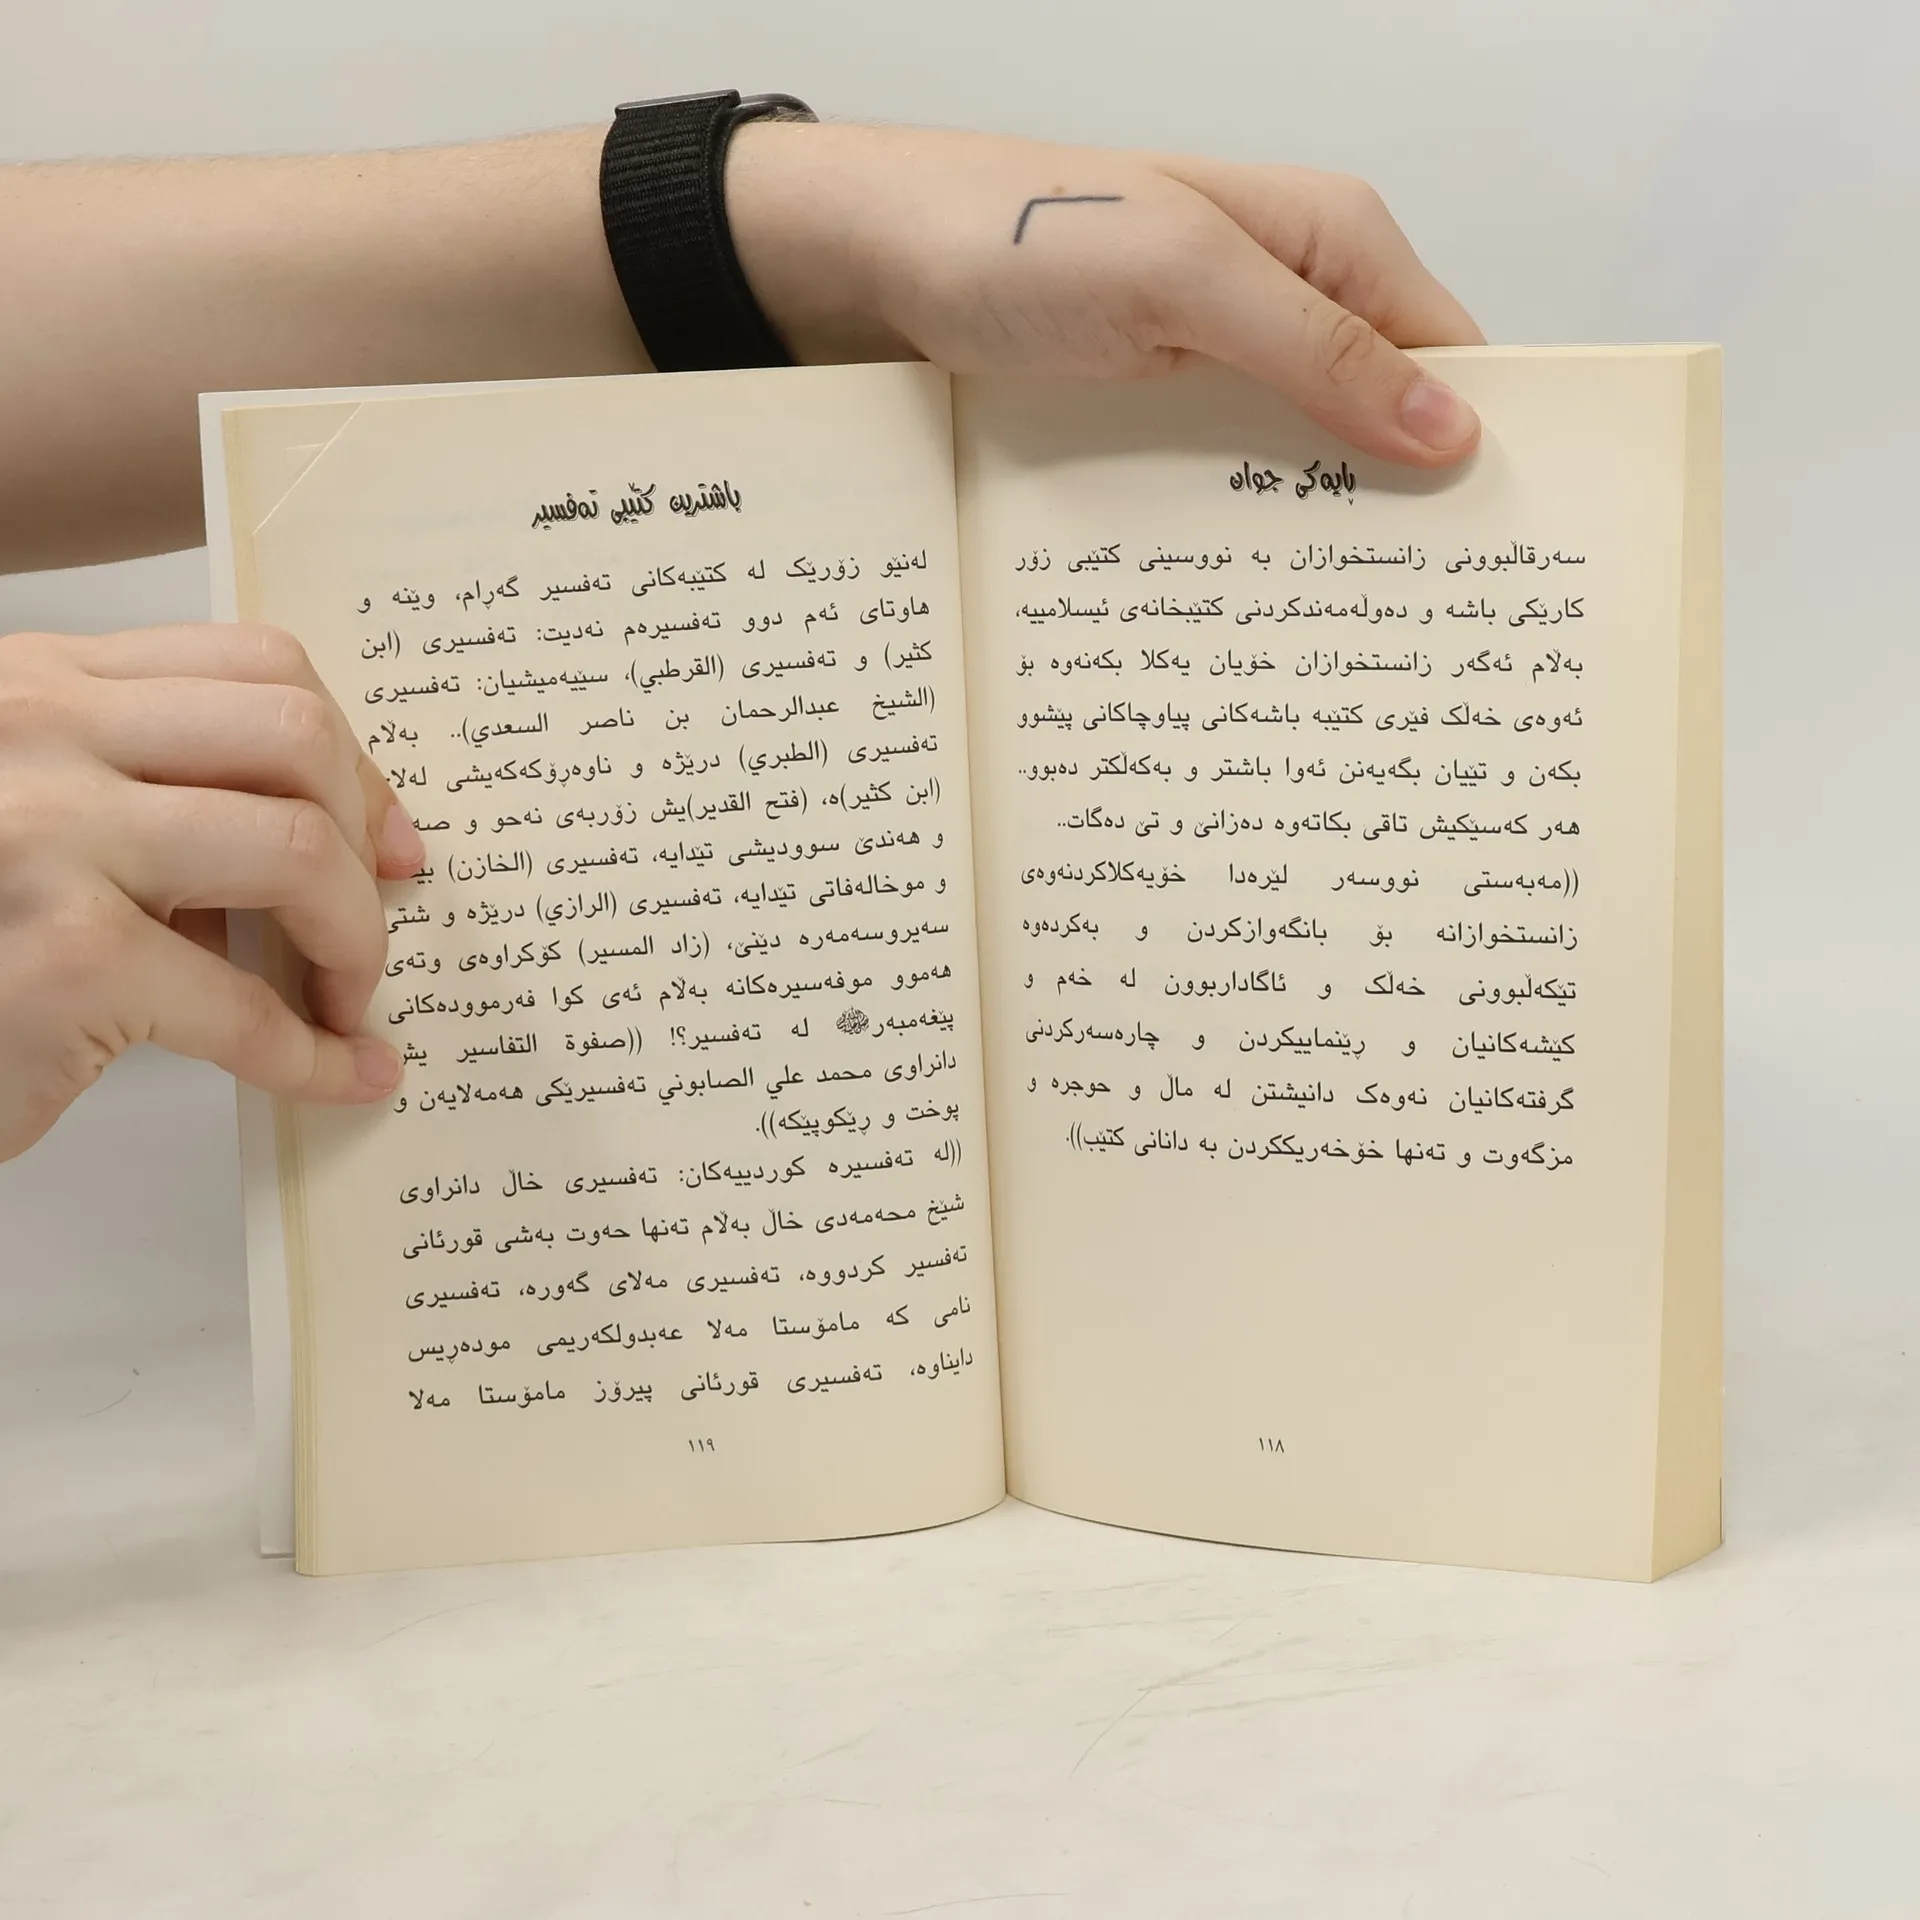 پایەکی جوان
سەرقاڵبوونی زانستخوازان بە نووسینی کتێبی زۆر
کارێکی باشە و دەوڵەمەندکردنی کتێبخانەی ئیسلامییە،
بەڵام ئەگەر زانستخوازان خۆیان یەکلا بکەنەوە بۆ
ئەوەی خەڵک فێری کتێبە باشەکانی پیاوچاکانی پێشوو
بکەن و تێیان بگەیەنن ئەوا باشتر و بەکەڵکتر دەبوو..
هەر کەسێکیش تاقی بکاتەوە دەزانێ و تێ دەگات..
((مەبەستی نووسەر لێرەدا خۆیەکلاکردنەوەی
زانستخوازانە بۆ بانگەوازکردن و بەکردەوە
تێکەڵبوونی خەڵک و ئاگاداربوون لە خەم و
کێشەکانیان و ڕێنماییکردن و چارەسەرکردنی
گرفتەکانیان نەوەک دانیشتن لە ماڵ و حوجرە و
مزگەوت و تەنها خۆخەریککردن بە دانانی کتێب)).
١١٨
باشترین کتێبی تەفسیر
لەنێو زۆرێک لە کتێبەکانی تەفسیر گەڕام، وێنە و
هاوتای ئەم دوو تەفسیرەم نەدیت: تەفسیری (ابن
کثیر) و تەفسیری (القرطبي)، سێیەمیشیان: تەفسیری
(الشیخ عبدالرحمان بن ناصر السعدي).. بەڵام
تەفسیری (الطبري) درێژە و ناوەڕۆکەکەیشی
(ابن کثیر)ە، (فتح القدیر)یش زۆربەی نەحو و
و هەندێ سوودیشی تێدایە، تەفسیری (الخازن)
و موخالەفاتی تێدایە، تەفسیری (الرازي) درێژە و شتی
سەیروسەمەرە دێنێ، (زاد المسیر) کۆکراوەی وتەی
هەموو موفەسیرەکانە بەڵام ئەی کوا فەرموودەکانی
پێغەمبەرﷺ لە تەفسیر؟! ((صفوة التفاسیر یش
دانراوی محمد علي الصابوني تەفسیرێکی هەمەلایەن و
پوخت و ڕێکوپێکە)).
((لە تەفسیرە کوردییەکان: تەفسیری خاڵ دانراوی
شێخ محەمەدی خاڵ بەڵام تەنها حەوت بەشی قورئانی
تەفسیر کردووە، تەفسیری مەلای گەورە، تەفسیری
نامی کە مامۆستا مەلا عەبدولکەریمی مودەڕیس
دایناوە، تەفسیری قورئانی پیرۆز مامۆستا مەلا
١١٩